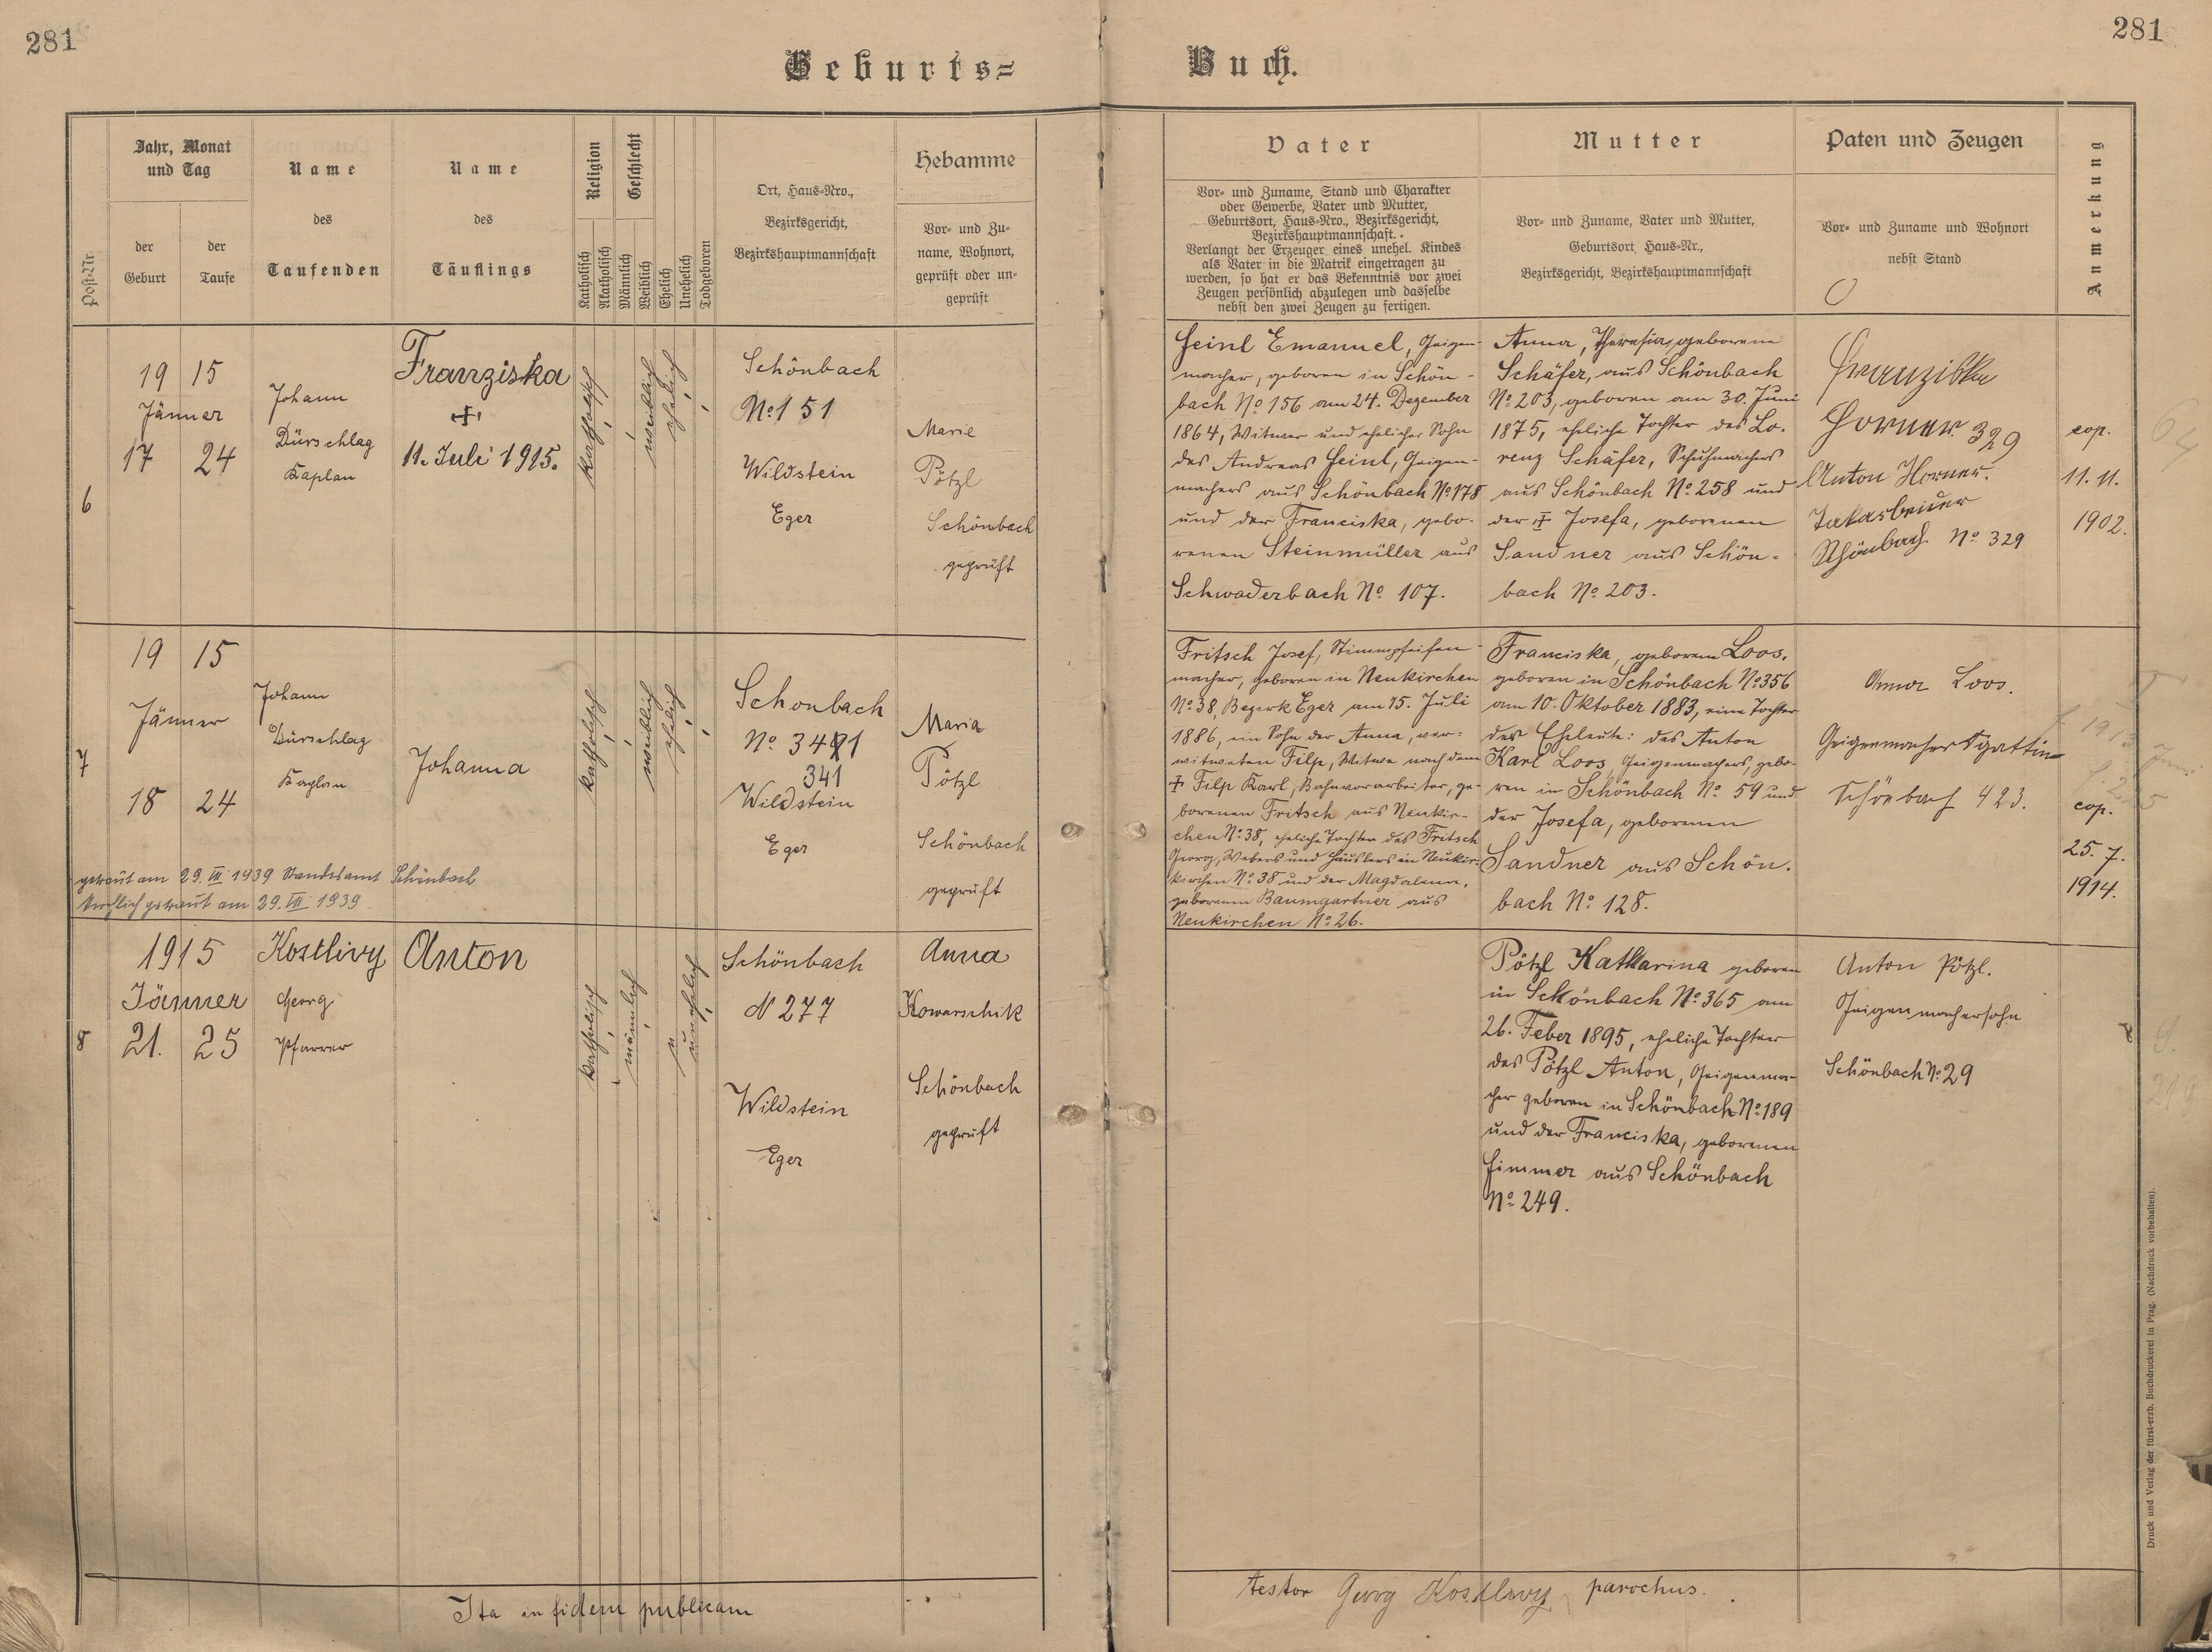 281
281
Geburts=
Buch.
Post-Nr.
Jahr, Monat
und Tag
der
Geburt
der
Taufe
Name
des
Taufenden
Name
des
Täuflings
Religion
Katholisch
Akatholisch
Geschlecht
Männlich
Weiblich
Ehelich
Unehelich
Todgeboren
Ort, Haus=Nro.,
Bezirksgericht,
Bezirkshauptmannschaft
Hebamme
Vor= und Zu=
name, Wohnort,
geprüft oder un=
geprüft
Vater
Vor= und Zuname, Stand und Charakter
oder Gewerbe, Vater und Mutter,
Geburtsort, Haus=Nro., Bezirksgericht,
Bezirkshauptmannschaft.
Verlangt der Erzeuger eines unehel. Kindes
als Vater in die Matrik eingetragen zu
werden, so hat er das Bekenntnis vor zwei
Zeugen persönlich abzulegen und dasselbe
nebst den zwei Zeugen zu fertigen.
Mutter
Vor= und Zuname, Vater und Mutter,
Geburtsort, Haus=Nr.,
Bezirksgericht, Bezirkshauptmannschaft
Paten und Zeugen
Vor= und Zuname und Wohnort
nebst Stand
Anmerkung
6
19 15
Jänner
17 24
Johann
Dürschlag
Kaplan
Franziska
+
11. Juli 1915.
katholisch
weiblich
ehelich
Schönbach
No 151
Wildstein
Eger
Marie
Pötzl
Schönbach
geprüft
Heinl Emanuel, Geigen-
macher, geboren in Schön-
bach No 156 am 24. Dezember
1864, Witwer und ehelicher Sohn
des Andreas Heinl, Geigen-
machers aus Schönbach No 178
und der Franciska, gebo-
renen Steinmüller aus
Schwaderbach No 107.
Anna, Theresia, geborene
Schäfer, aus Schönbach
No 203, geboren am 30. Juni
1875, eheliche Tochter des Lo-
renz Schäfer, Schuhmachers
aus Schönbach No 258 und
der + Josefa, geborenen
Sandner aus Schön-
bach No 203.
Franziska
Horner 329
Anton Horner.
Schönbach. No 329
cop.
11. 11.
1902.
64
7
19 15
Jänner
18 24
Johann
Dürschlag
Kaplan
Johanna
katholisch
weiblich
ehelich
Schönbach
No 341
341
Wildstein
Eger
Maria
Pötzl
Schönbach
geprüft
getraut am 29. III. 1939 Standesamt Schönbach
kirchlich getraut am 29. III. 1939.
Fritsch Josef, Stimmpfeifen-
macher, geboren in Neukirchen
No 38, Bezirk Eger am 15. Juli
1886, ein Sohn der Anna, ver-
witweten Filp, Witwe nach dem
+ Filp Karl, Bahnvorarbeiter, ge-
borenen Fritsch aus Neukir-
chen No 38, eheliche Tochter des Fritsch
Georg, Webers und Häuslers in Neukir-
kirchen No 38 und der Magdalena,
geborenen Baumgartner aus
Neukirchen No 26.
Franciska, geborene Loos,
geboren in Schönbach No 356
am 10. Oktober 1883, eine Tochter
der Eheleute: des Anton
Karl Loos, Geigenmachers, gebo-
ren in Schönbach No 59 und
der Josefa, geborenen
Sandner aus Schön-
bach No 128.
Anna Loos.
Geigenmachersgattin
Schönbach 423.
cop.
25. 7.
1914.
8
1915
Jänner
21. 25
Kostlivy
Georg
Pfarrer
Anton
katholisch
männlich
unehelich
Schönbach
N 277
Wildstein
Eger
Anna
Kowarschik
Schönbach
geprüft
Pötzl Katharina geboren
in Schönbach No 365 am
26. Feber 1895, eheliche Tochter
des Pötzl Anton, Geigenma-
cher geboren in Schönbach No 189
und der Franciska, geborenen
Himmer aus Schönbach
No 249.
Anton Pötzl.
Geigenmachersohn
Schönbach No 29
Ita in fidem publicam
testor Georg Kostlivy parochus.
Druck und Verlag der fürst-erzb. Buchdruckerei in Prag. (Nachdruck vorbehalten).